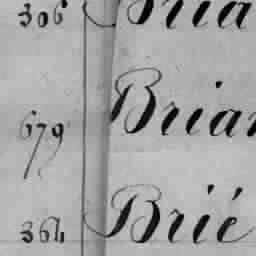 306 Bria
679 Brian
364 Brié